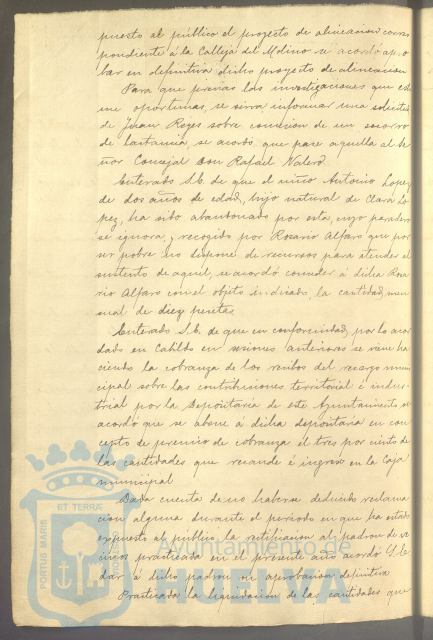 puesto al publico el proyecto de alineacion corres
pondiente á la Calleja del Molino se acordó apro
bar en definitiva dicho proyecto de alineacion
Para que previas las investigaciones que esti
me oportunas, se sirva informar una solicitud
de Juan Rojes sobre concesion de un socorro
de lactancia, se acordó que pase aquella al Se
ñor Concejal Don Rafael Valero.
Enterado S.E. de que el niño Antonio Lopez
de dos años de edad, hijo natural de Clara Lo
pez, ha sido abandonado por esta, cuyo paradero
se ignora, y recogido por Rosario Alfaro que por
ser pobre no dispone de recursos para atender al
sustento de aquel, se acordó conceder á dicha Rosa
rio Alfaro con el objeto indicado, la cantidad men
sual de diez pesetas
Enterado S.E. de que en conformidad, por lo acor
dado en Cabildo en sesiones anteriores se viene ha
ciendo la cobranza de los recibos del recargo muni
cipal sobre las contribuciones territorial é indus
trial por la Depositaria de este Ayuntamiento se
acordó que se abone á dicha depositaria en con
cepto de premio de cobranza el tres por ciento de
las cantidades que recaude é ingrese en la Caja
municipal
Dada cuenta de no haberse deducido reclama
cion alguna durante el periodo en que ha estado
expuesto al publico la rectificacion al padron de ve
cinos practicada en el presente año acordó S.E.
dar á dicho padron su aprobacion definitiva
Practicada la liquidacion de las cantidades que
PORTUS MARIS
ET TERRÆ
Ayuntamiento de
HUELVA